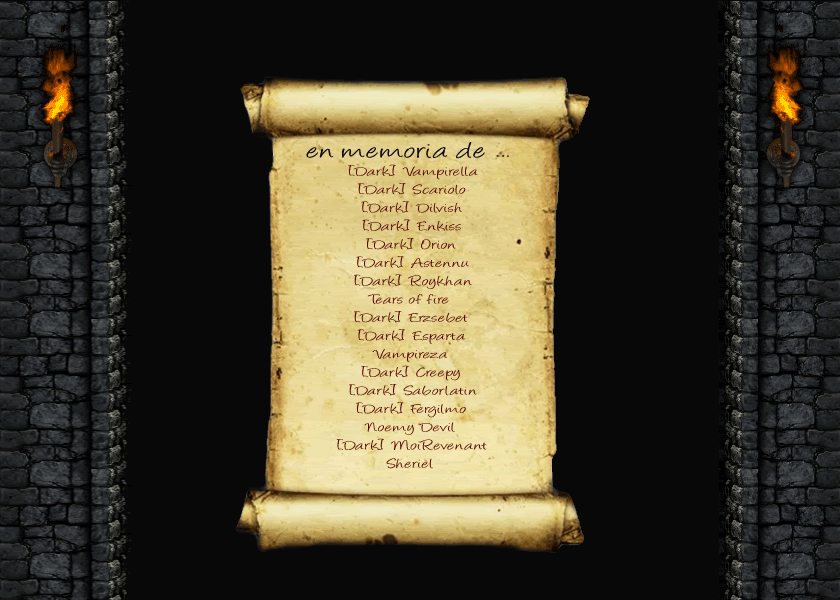 en memoria de ...
[Dark] Vampirella
[Dark] Scariolo
[Dark] Dilvish
[Dark] Enkiss
[Dark] Orion
[Dark] Astennu
[Dark] Roykhan
Tears of fire
[Dark] Erzsebet
[Dark] Esparta
Vampireza
[Dark] Creepy
[Dark] Saborlatin
[Dark] Fergilmo
Noemy Devil
[Dark] MoiRevenant
Sheriel